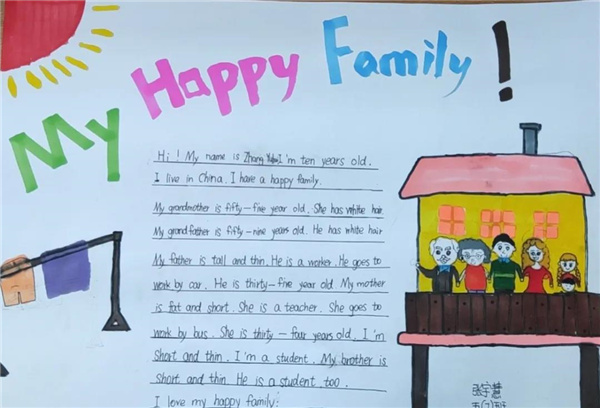 My Happy Family!
Hi! My name is Zhang I'm ten years old.
I live in China. I have a happy family.
My grandmother is fifty-five year old. She has white hair
My grandfather is fifty-nine years old. He has white hair
My father is tall and thin. He is a worker. He goes to
work by car. He is thirty-five year old My mother
is fat and short. She is a teacher. She goes to
work by bus. She is thirty-four years old. I'm
short and thin. I'm a student. My brother is
short and thin. He is a student too.
I love my happy family!
张宇慧